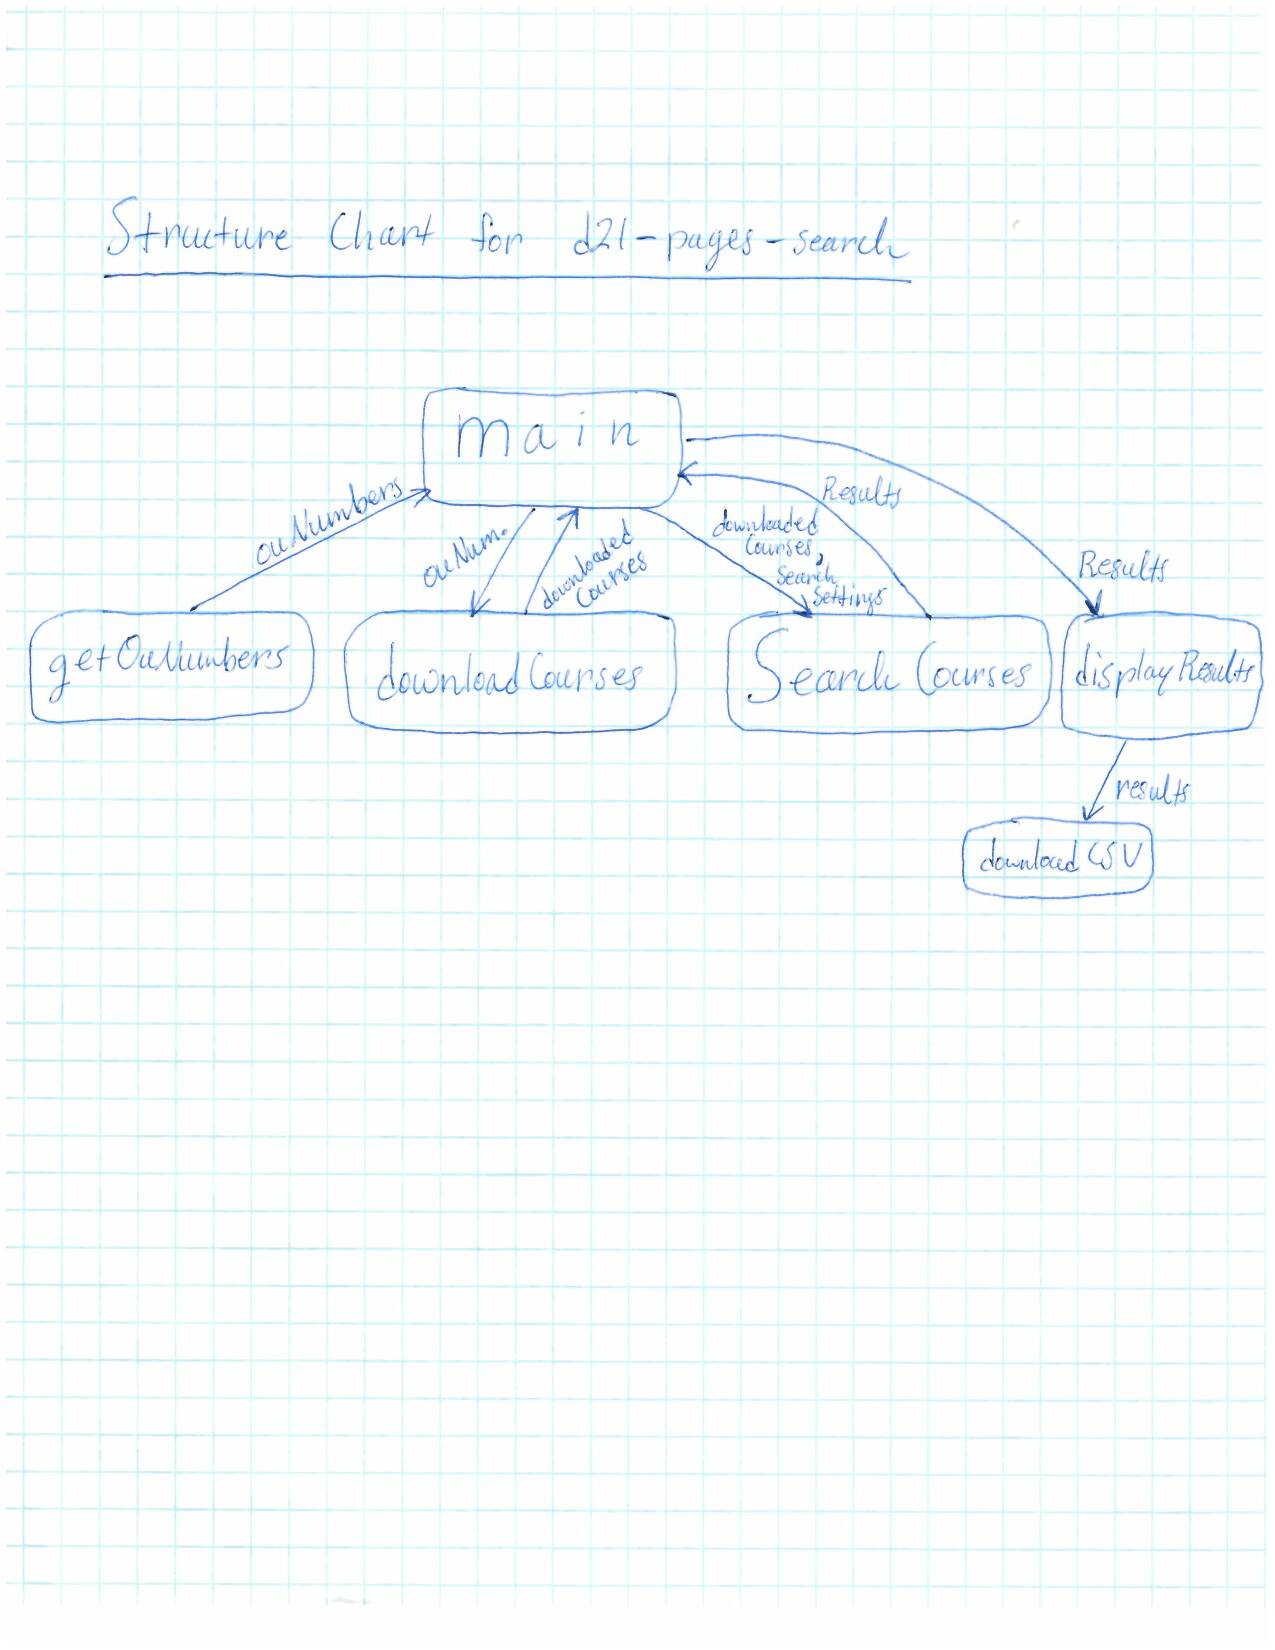 Structure Chart for d2l-pages-search
main
ouNumbers
ouNum.
downloaded
Courses
downloaded
Courses,
Search
Settings
Results
Results
getOuNumbers
downloadCourses
Search Courses
displayResults
results
downloadCSV